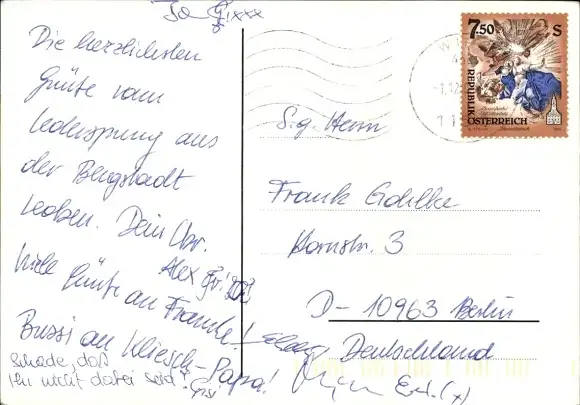 Die herzlichsten
Grüße vom
Ledersprung aus
der Bergstadt
Leoben. Dein Chr.
Alex
viele Grüße an Franke!
Bussi an Kliesch-Papa!
Schade, daß
Ihr nicht dabei seid!
7.50 S
REPUBLIK
ÖSTERREICH
S.g. Herrn
Frank Gohlke
Hornstr. 3
D-10963 Berlin
Deutschland